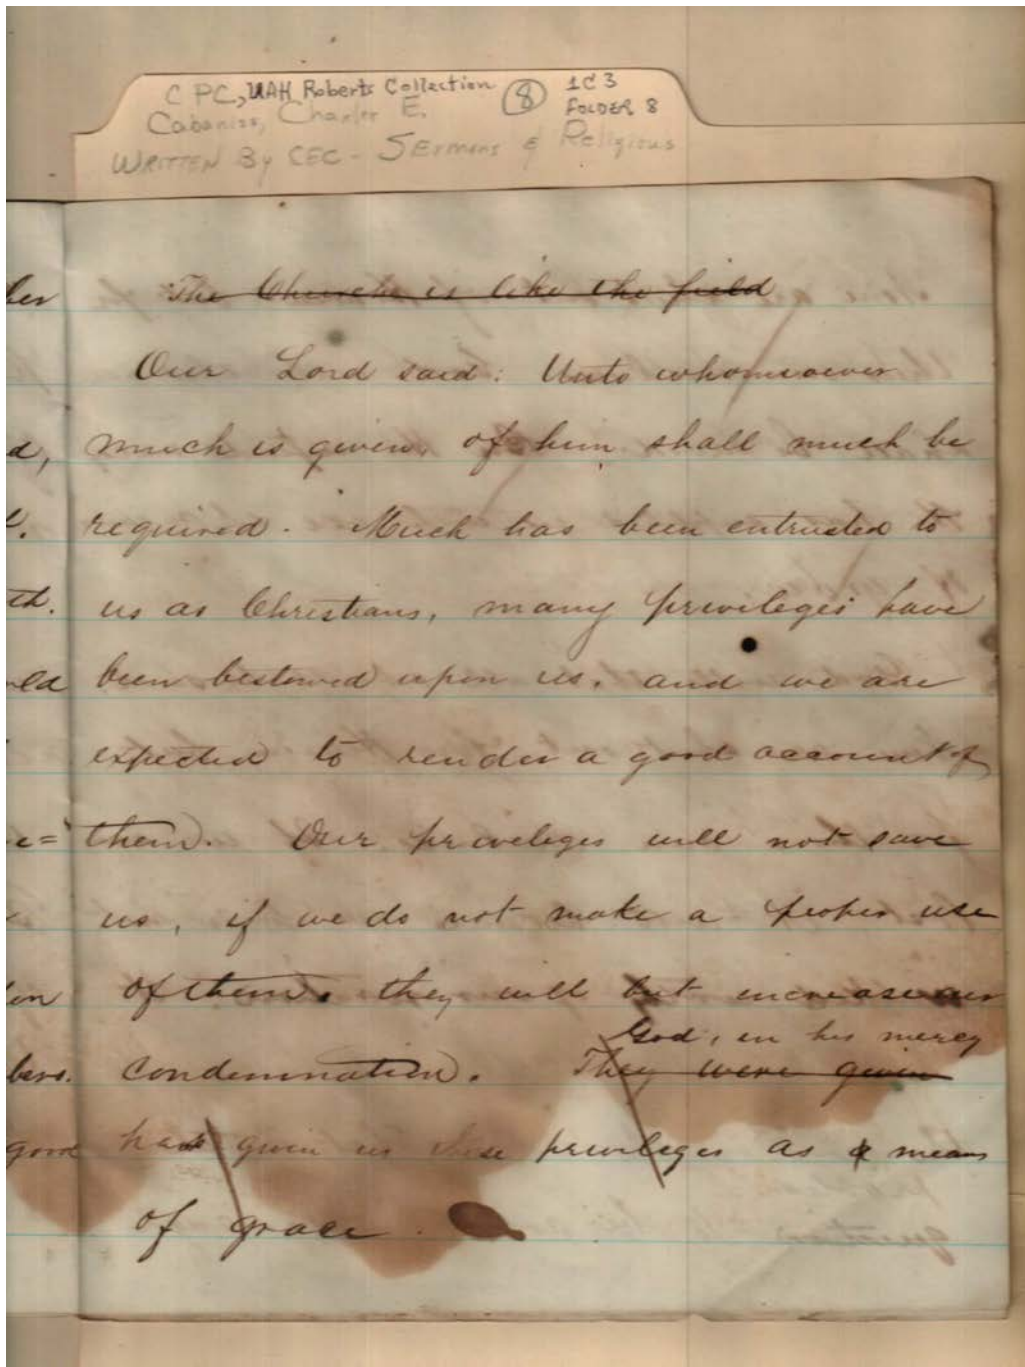 C PC, UAH Roberts Collection (8) 1C3
Cabaniss, Charles E. FOLDER 8
WRITTEN By CEC - SErmons & Religious
The Church is like the field
Our Lord said: Unto whomsoever
much is given, of him shall much be
required. Much has been entrusted to
us as Christians, many privileges have
been bestowed upon us, and we are
expected to render a good account of
them. Our priveleges will not save
us, if we do not make a proper use
of them. they will but increase our
God, in his mercy
condemnation. They were given
has given us these privileges as a means
of grace.
ber
d,
th.
eld
e=
on
bers.
good